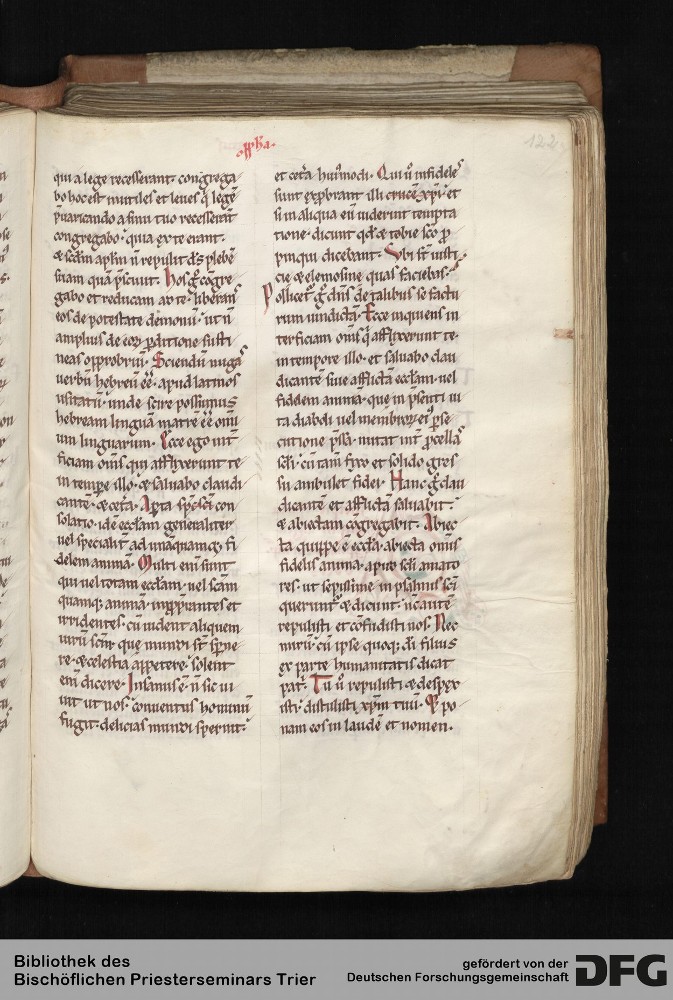 122
qui a lege recesserant. congrega
bo hoc est inutiles et leues q̇ legē
p̄uaricando a sinu tuo recesserāt
congregabo. quia ex te erant.
& scdm aplm ñ repulit ds plebē
suam quā p̄sciuit. Hos g̊ cōgre
gabo et reducam ad te. liberans
eos de potestate demonū. ut ñ
amplius de eoꝝ p̄ditione susti
neas opprobriū. Sciendū nugas
uerbū hebreū eē. apud latinos
usitatū. unde scire possimus
hebream linguā matrē eē omi
um linguarum. Ecce ego int̄
ficiam oms qui afflixerunt te
in tempe illo. & saluabo claudi
cantē. & cet̄a. Aperta sps sci con
solatio. idē ecclam generaliter
uel specialit̄ ad unāquamq; fi
delem animā. Multi eni sunt
qui uel totam ecclam. uel scam
quamq; animā. ingrediantes et
irridentes. cū uident aliquem
uirū scm que mundi st̄ sp̄ne
re. & celestia appetere. solent
eni dicere. Insanus ē. ñ sic ui
uit ut nos. conuentus hominū
fugit. delicias mundi spernit.
et cet̄a hui9modi. Qui ů infideles
sunt exp̄brant illi crucē xp̄i. et
si in aliqua eū uiderint tempta
tione. dicunt qd & tobie sco p̄
pinqui dicebant. Vbi st̄ iusti
cie & elemosine quas faciebas.
Pollicet̄ g̊ dns de talibus se factu
rum uindictā. Ecce inquiens in
terficiam oms q̇ afflixerunt te
in tempore illo. et saluabo clau
dicantē siue afflictā ecclam. uel
fidelem animā. que in p̄senti ui
ta diaboli uel membroꝝ ei9 p̄se
cutione p̄ssa. nutat int̄ p̄cellas
scli. cū tam fixo et solido gres
su ambulet fidei. Hanc g̊ clau
dicantē et afflictā saluabit.
& abiectam cōgregabit. Abiec
ta quippe ē eccla. abiecta omis
fidelis anima. apud scli amato
res. ut sepissime in psalmis sci
querunt̄ & dicunt. Nc autē
repulisti et cōfudisti nos. Nec
mirū cū ipse quoq; di filius
ex parte humanitatis dicat
patri. Tu ů repulisti & despex
isti. distulisti xpm tuū. Et po
nam eos in laudē et nomen.
Bibliothek des
Bischöflichen Priesterseminars Trier
gefördert von der
Deutschen Forschungsgemeinschaft
DFG